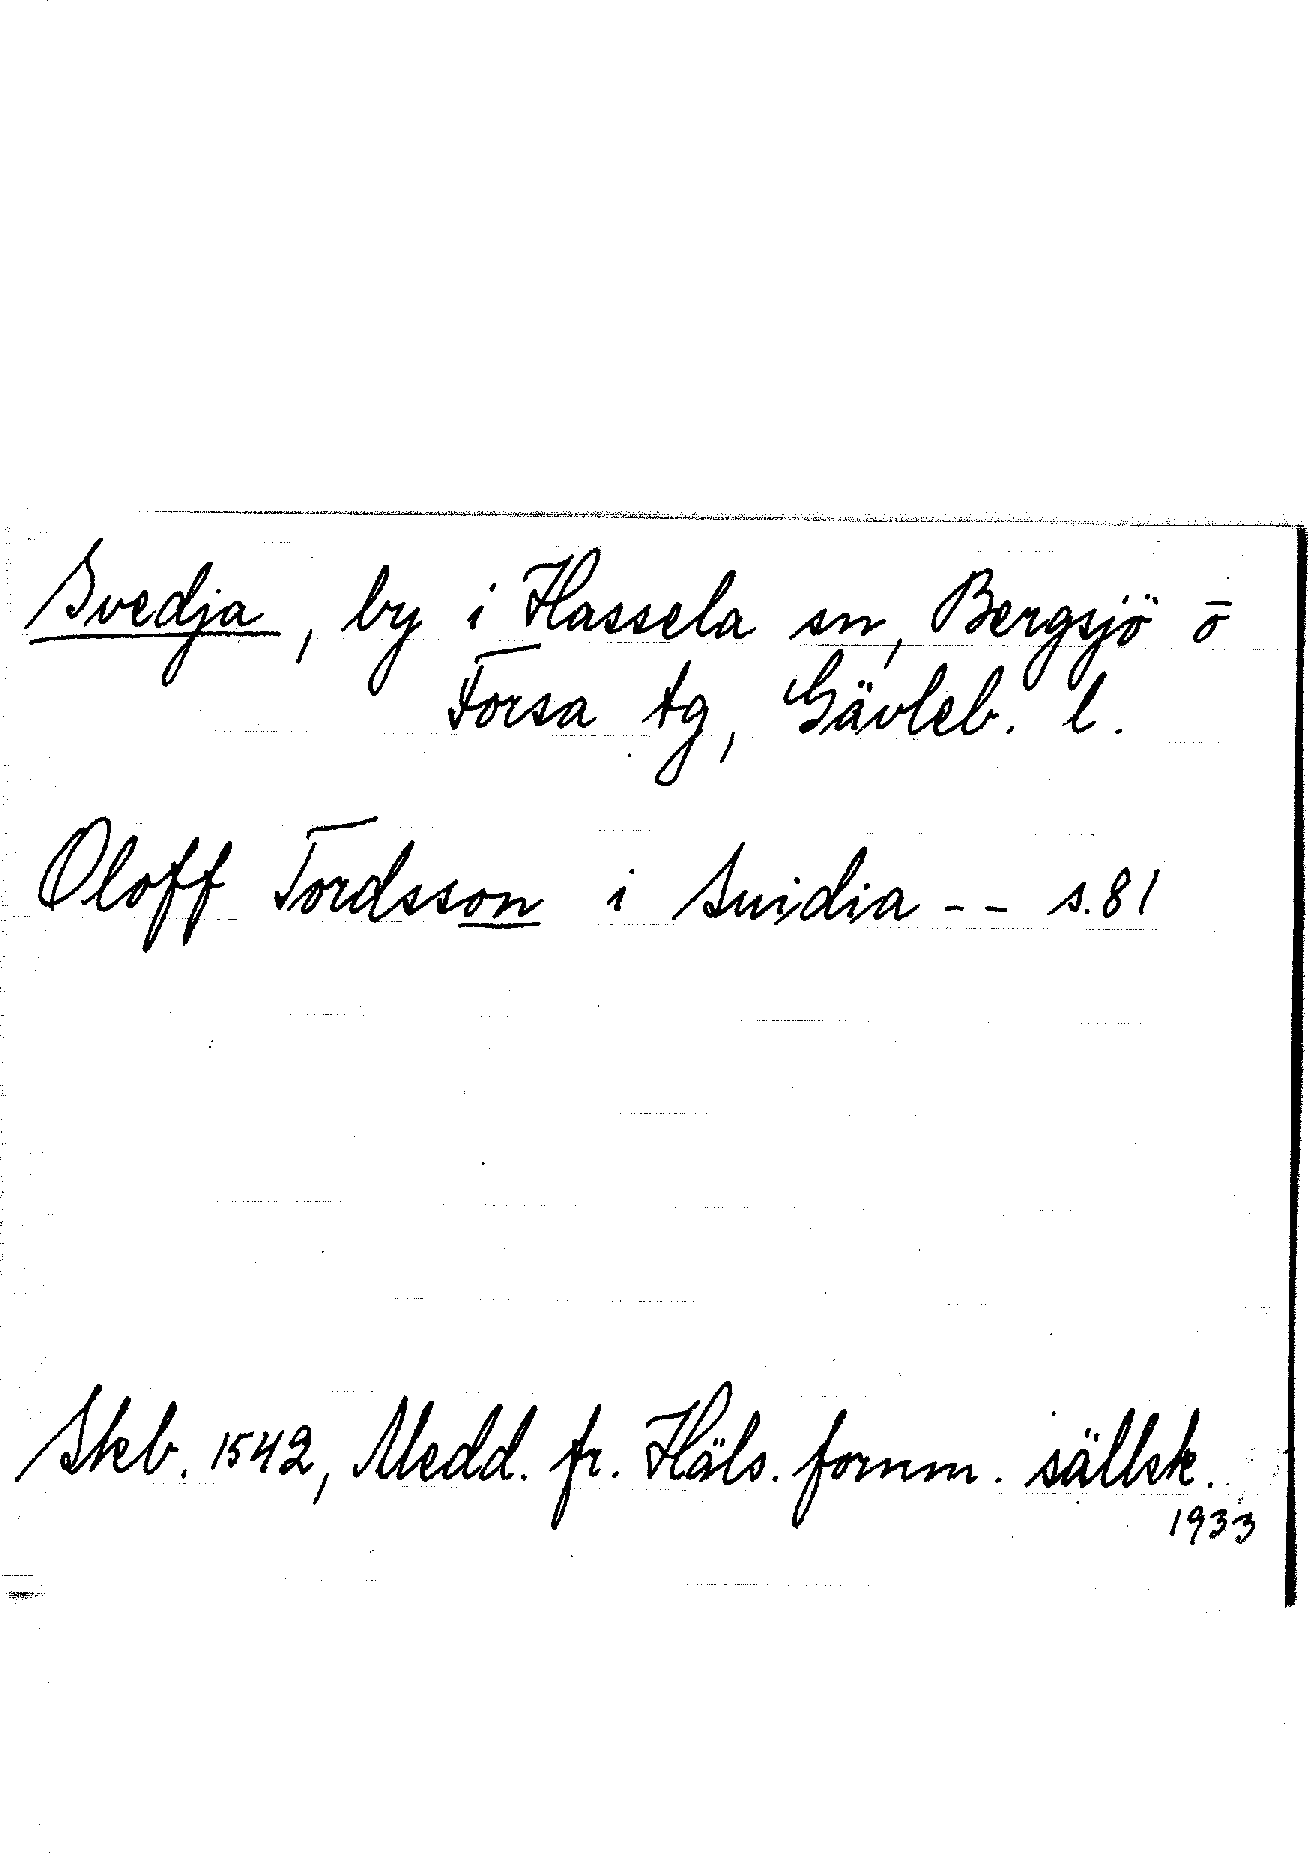 Svedja, by i Hassela sn, Bergsjö o
Forsa tg, Gävleb. l.
Oloff Tordsson i Suidia -- s. 81
Skb. 1542, Medd. fr. Häls. fornm. sällsk.
1933